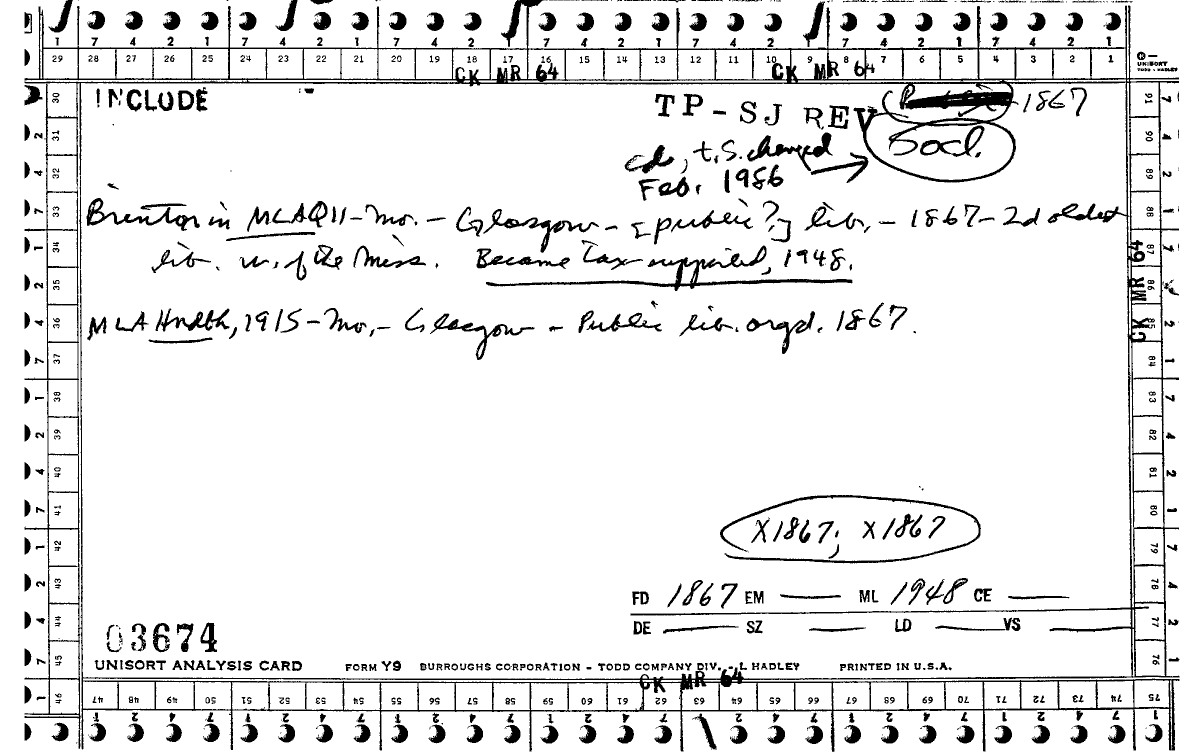 7 4 2 1 7 4 2 1 7 4 2 1 7 4 2 1 7 4 2 1 7 4 2 1 7 4 2 1
29 28 27 26 25 24 23 22 21 20 19 18 17 16 15 14 13 12 11 10 9 8 7 6 5 4 3 2 1
CK MR 64 CK MR 64
UNISORT
TODD - HADLEY
INCLUDE
TP-SJ REV 1867
Socl.
cds, t.S. changed
Feb. 1986
Brenton in MLAQ11-Mo. - Glasgow - [public?] lib. - 1867- 2d oldest
lib. w. of the Miss. Became tax supported, 1948.
MLA Hndbk, 1915 - Mo. - Glasgow - Public lib. orgd. 1867.
CK MR 64
X1867; X1867
FD 1867 EM — ML 1948 CE —
DE — SZ — LD — VS —
03674
UNISORT ANALYSIS CARD FORM Y9 BURROUGHS CORPORATION - TODD COMPANY DIV. - L HADLEY PRINTED IN U.S.A.
CK MR 64
47 48 49 50 51 52 53 54 55 56 57 58 59 60 61 62 63 64 65 66 67 68 69 70 71 72 73 74 75